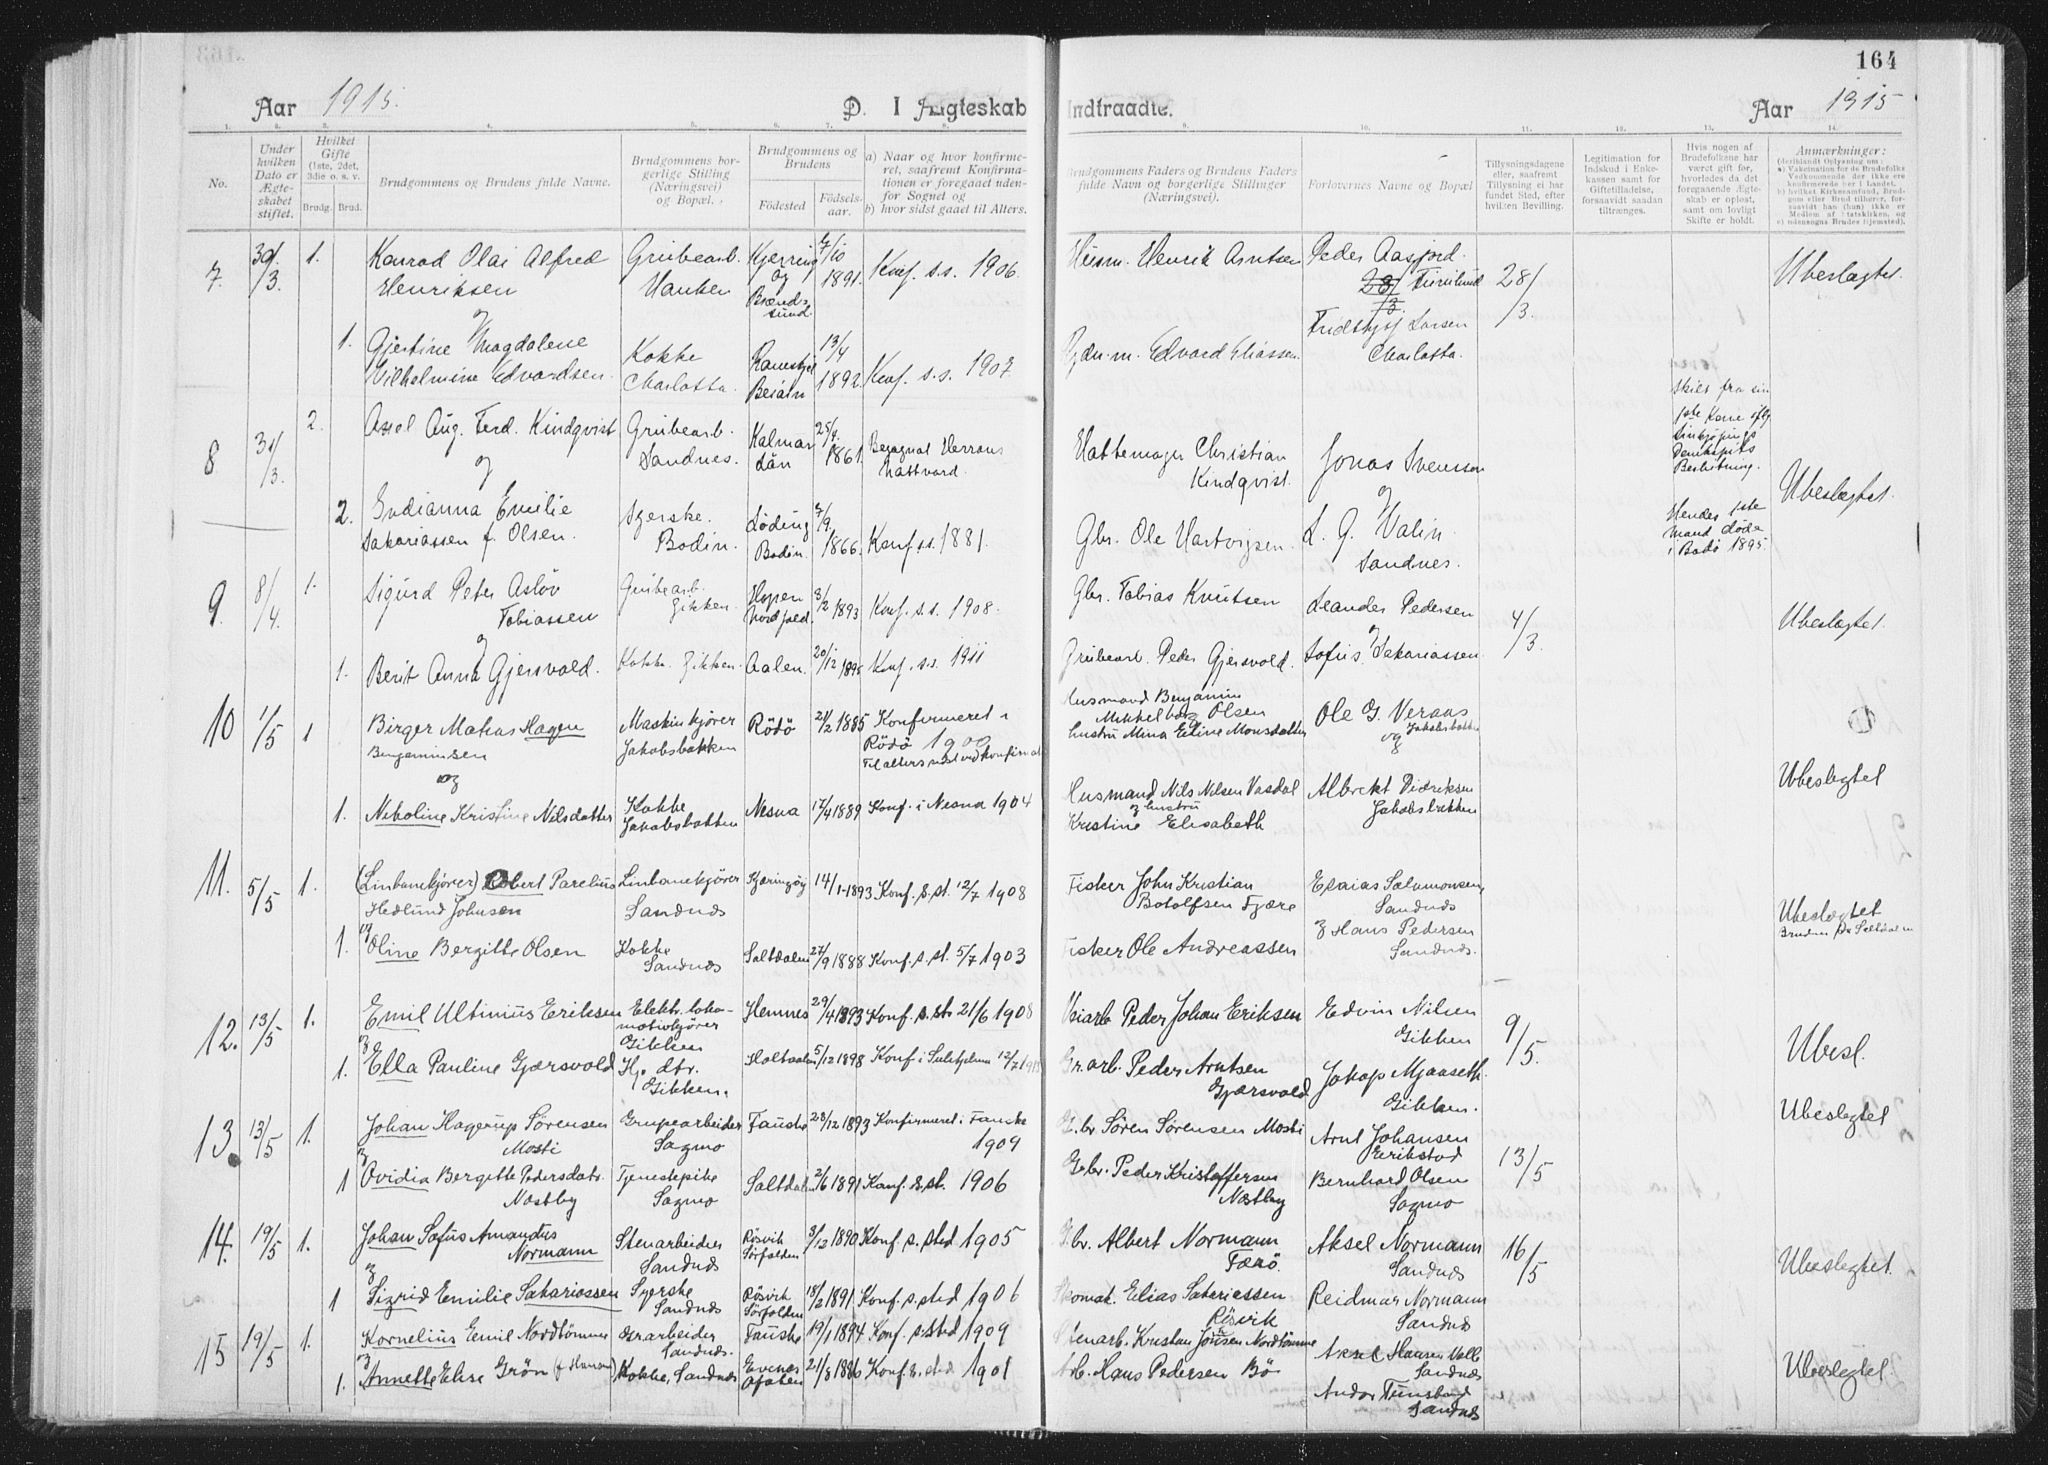 164
Aar 1915.
D. I Ægteskab Indtraadte.
Aar 1915
1. 2. 3. 4. 5. 6. 7. 8. 9. 10. 11. 12. 13. 14.
No.
Under hvilken Dato er Ægteskabet stiftet.
Hvilket Gifte (1ste, 2det, 3die o. s. v.
Brudg. Brud.
Brudgommens og Brudens fulde Navne.
Brudgommens borgerlige Stilling (Næringsvei) og Bopæl.
Brudgommens og Brudens
Födested
Födselsaar.
a) Naar og hvor konfirmeret, saafremt Konfirmationen er foregaaet udenfor Sognet og
b) hvor sidst gaaet til Alters.
Brudgommens Faders og Brudens Faders fulde Navn og borgerlige Stillinger (Næringsvei).
Forlovernes Navne og Bopæl
Tillysningsdagene eller, saafremt Tillysning ei har fundet Sted, efter hvilken Bevilling.
Legitimation for Indskud i Enkekassen samt for Giftetilladelse, forsaavidt saadan tiltrænges.
Hvis nogen af Brudefolkene har været gift før, hvorledes da det foregaaende Ægteskab er opløst, samt om lovligt Skifte er holdt.
Anmærkninger:
7. 30/3. 1. Konrad Olai Alfred Henriksen
Grubearb. Hanken
Kjerringø og Brændsund
7/10 1891.
Konf. s.s. 1906.
Husm. Henrik Arntsen
Peder Aasjord. Furulund
28/3.
Ubeslægtet.
og
1. Gjertine Magdalene Vilhelmine Edvardsen
Kokke Charlotta.
Beiarn
13/4 1892.
Konf. s.s. 1907.
Edvard Eliassen.
Fridthjof Larsen Charlotta.
8 31/3. 2. Axel Aug. Ferd. Kindqvist
Grubearb. Sandnes.
Kalmar Län
25/9. 1861.
Begagnat Herrans Nattvard.
Hattemager Christian Kindqvist.
Jonas Svensson
Skilt fra sin 1ste Kone iflg. Linkjøpings Domkapits Beslutning.
Ubeslægtet.
og
2. Indianna Emilie Sakariassen f. Olsen.
Syerske. Bodin.
Løding Bodin.
7/9. 1866.
Konf. s.s. 1881.
Gbr. Ole Hartvigsen.
og
L. G. Walin. Sandnes.
Hendes 1ste Mand døde i Bodø 1895.
9. 8/4. 1. Sigurd Peter Asløv Tobiassen
Grubearb. Gikken.
Hopen Nordfold.
3/2 1893
Konf. s.s. 1908.
Gbr. Tobias Knutsen
Leander Pedersen
4/3.
Ubeslægtet.
og
1. Berit Anna Gjersvold.
Kokke. Gikken.
Aalen.
20/12 1895
Konf. s.s. 1911
Grubearb. Peder Gjersvold.
og
Sofus Sakariassen
10 1/5 1 Birger Matias Hagen Benjaminsen
Maskinkjører Jakobsbakken
Rödö
21/2 1885
Konfirmeret i Rödö 1900
Til alters sidst ved konfirmat
Husmand Benjamin Mikkelborg Olsen
hustru Mina Eline Monsdatter
Ole G. Veraas Jakobsbakken
og
og
1. Nikoline Kristine Nilsdatter
Kokke Jakobsbakken
Nesna
17/4 1889
Konf. i Nesna 1904
Husmand Nils Nilsen Vasdal og hustru Kristine Elisabeth
Albrekt Didriksen Jakobsbakken
Ubeslegtet
11. 5/5 1. (Linbanekjører) Robert Parelius Hedlund Johnsen
Linbanekjører Sandnes
Kjæringöy
14/1-1893
Konf. s. st. 12/7 1908
Fisker John Kristian Botolfsen Fjære
Esaias Salamonsen, Sandnes
Ubeslægtet
og
1. Oline Bergitte Olsen
Kokke Sandnes
Saltdalen
27/9 1888
Konf. s. st. 5/7 1903
Fisker Ole Andreassen
& Hans Pedersen Sandnes.
12. 13/5 1. Emil Ultimius Eriksen
Elektr. lokomotivkjører Gikken
Hemnes
29/4 1893
Konf. s. st. 21/6 1908
Veiarb. Peder Johan Eriksen
Edvin Nilsen Gikken
9/5.
Ubesl.
&
1. Ella Pauline Gjærsvold
Hj. dtr. Gikken.
Holtaalen
5/12 1898
Konf i Sulitjelma 12/7 1913
Gr. arb. Peder Arntsen Gjærsvold
Jakop Mjaaseth. Gikken.
13. 13/5 1. Johan Hagerup Sörensen Mosti
Grupearbeider Sagmo
Fauske
28/12 1893
Konfirmeret i Fauske 1909
G. br Sören Sörensen Mosti
Arnt Johansen Erikstad
13/5
Ubeslegtet
&
1 Ovidia Bergette Pedersdatr. Næstby
Tjenestepike Sagmo
Saltdalen
2/6 1891
Konf. s. st. 1906
Gbr. Peder Kristoffersen Næstby
Bernhard Olsen Sagmo
14. 19/5 1. Johan Sofus Amandus Normann
Stenarbeider Sandnes
Rösvik Sörfolden
3/12 1890
Konf. s. sted 1905
G. br. Albert Normann Færö.
Aksel Normann Sandnes
16/5
Ubeslegtet.
&
1 Sigrid Emilie Sakariassen
Syerske Sandnes
Rösvik Sörfolden
18/2 1891
Konf. s. sted 1906
Skomak. Elias Sakariassen Rösvik
Reidmar Normann Sandnes
15 19/5 1. Kornelius Emil Nordtömme
Grarbeider Sandnes.
Fauske
19/1 1894
Konf. s. sted 1909
Stenarb. Kristan Jonsen Nordtömme
Aksel Hansen Valb Sandnes
Ubeslegtet.
&
1. Annette Elise Grön (f Hansen)
Kokke, Sandnes
Evenes Ofoten
21/8 1886
Konf. s. sted 1901
Arb. Hans Pedersen Bö
Andor Furulund Sandnes